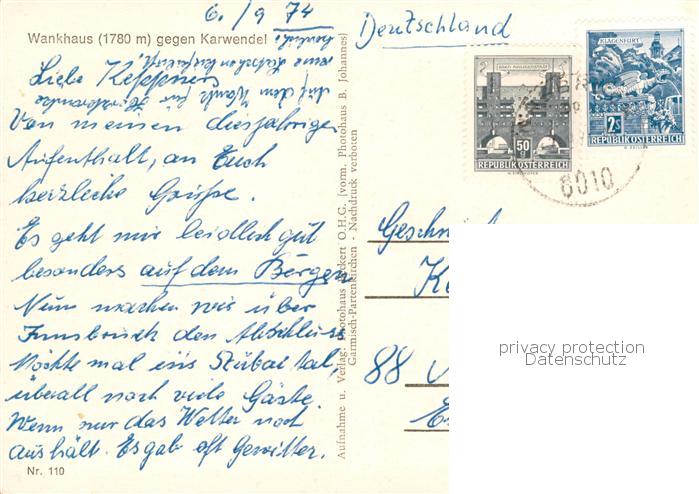 6./9 74
Deutschland
Wankhaus (1780 m) gegen Karwendel
Liebe Keppner
auf dem Wank für
Von meinen diesjährigen
Aufenthalt, an Euch
herzliche Grüße.
Es geht mir leidlich gut
besonders auf dem Bergen
Nun machen wir über
Innsbruck den Abschluss
Möchte mal ins Stubaital,
überall noch viele Gäste.
Wenn nur das Wetter noch
aushält. Es gab oft Gewitter.
Nr. 110
Aufnahme u. Verlag: Photohaus Beckert O.H.G. (vorm. Photohaus B. Johannes)
Garmisch-Partenkirchen - Nachdruck verboten
50 g
REPUBLIK ÖSTERREICH
KLAGENFURT
2 S
REPUBLIK ÖSTERREICH
6010
88
privacy protection
Datenschutz